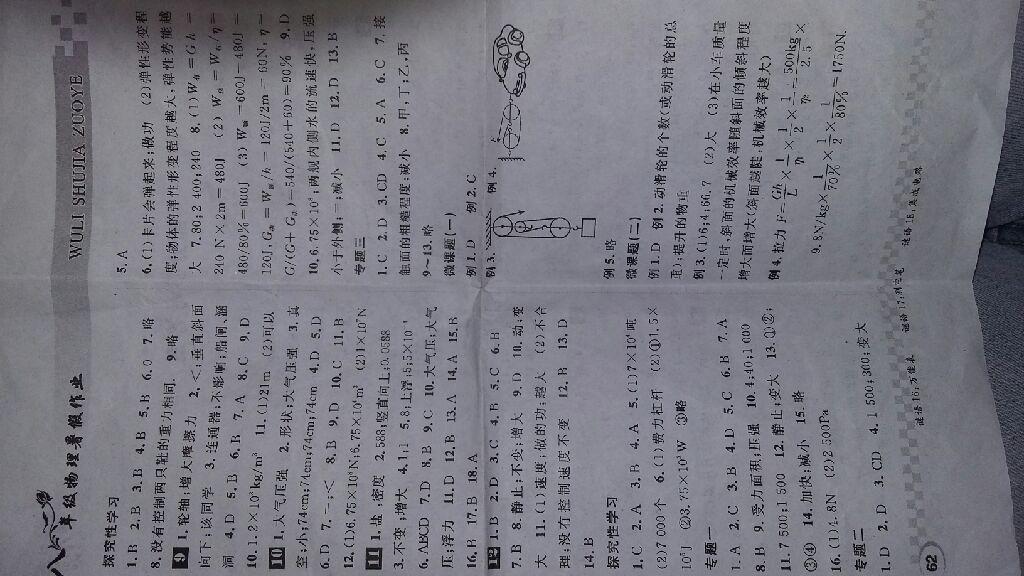 八年级物理暑假作业
WULI SHUJIA ZUOYE
探究性学习
1. B 2. B 3. B 4. B 5. B 6. 0 7. 略
8. 没有控制两只鞋的重力相同 9. 略
9 1. 轮轴;增大 摩擦力 2. <;垂直斜面
向下;该同学 3. 连通器;不影响;船闸、涵
洞 4. D 5. B 6. B 7. A 8. C 9. D
10. 1.2×10³kg/m³ 11. (1)21m (2)可以
10 1. 大气压强 2. 形状;大气压强 3. 真
空;小;74cm;74cm;74cm 4. D 5. D
6. D 7. =;< 8. B 9. D 10. C 11. B
11 1. 盐,密度 2. 588;竖直向上;0.0588
3. 不变;增大 4. 1:1 5. 8;上浮;5;5×10⁻⁴
6. ABCD 7. D 8. B 9. C 10. 大气压;大气
压;浮力 11. D 12. B 13. A 14. A 15. B
16. B 17. B 18. A
12 1. B 2. D 3. C 4. B 5. C 6. B
7. B 8. 静止;不变;增大 9. D 10. 动;变
大 11. (1)速度;做的功;越大 (2)不合
理;没有控制速度不变 12. B 13. D
14. B
探究性学习
1. C 2. A 3. B 4. A 5. (1)7×10⁴吨
(2)7000个 6. (1)费力杠杆 (2)①1.5×
②3.75×10³W ③略
专题一
1. A 2. C 3. B 4. D 5. C 6. B 7. A
8. B 9. 受力面积;压强 10. 4;40;1 000
11. 7 500;1 500 12. 静止;变大 13. ①②;
③④ 14. 加快;减小 15. 略
16. (1)4.8N (2)2 500Pa
专题二
1. D 2. D 3. CD 4. 1 500;300;变大
62
5. A
6. (1)卡片会弹起来;做功 (2)弹性形变程
度;物体的弹性形变程度越大,弹性势能越
大 7. 80;2 400;240 8. (1)W有=Gh=
240N×2m=480J (2)W总=W有/η=
480J/80%=600J (3)W额=600J-480J=
120J,G动=W额/h=120J/2m=60N,η=
G/(G+G动)=540/(540+60)=90% 9. D
10. 6.75×10⁴;两舰内侧水的流速快,压强
小于外侧;=;减小 11. D 12. D 13. B
专题三
1. C 2. D 3. CD 4. C 5. A 6. C 7. 接
触面的粗糙程度;减小 8. 甲,丁;乙,丙
9~13. 略
微课题(一)
例1. D 例2. C
例3. 例4.
例5. 略
微课题(二)
例1. D 例2. 动滑轮的个数(或动滑轮的总
重);提升的物重
例3. (1)6;4;66.7 (2)大 (3)在小车质量
一定时,斜面的机械效率随斜面的倾斜程度
增大而增大(斜面越陡,机械效率越大)